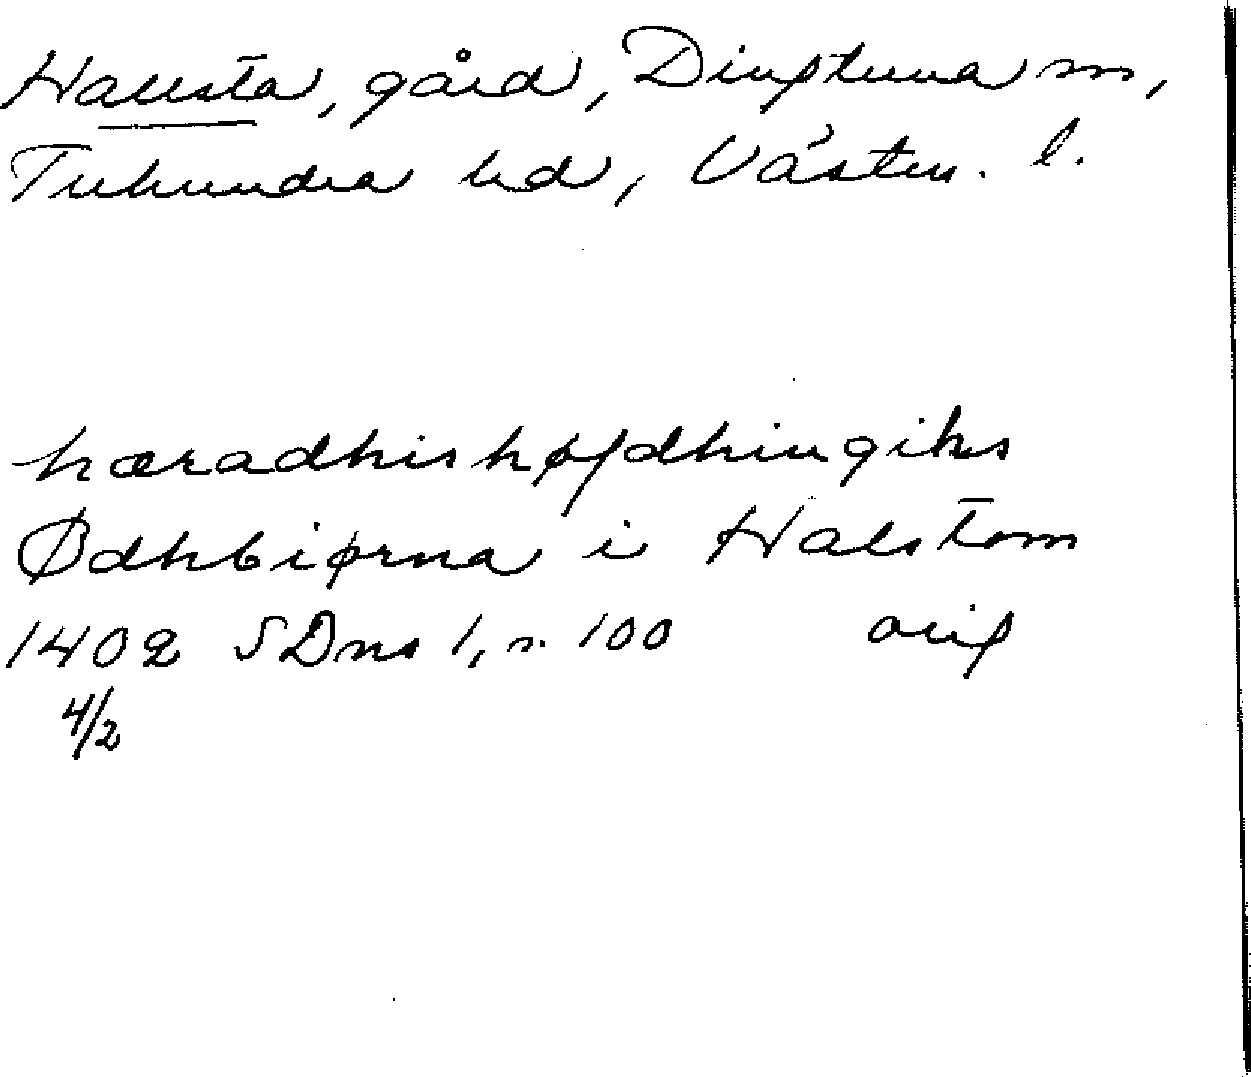 Hallsta, gård, Dingtuna sn,
Tuhundra hd, Västm. l.
hæradhishøfdhingiks
Ødhbiørna i Halstom
1402 SDns 1, n. 100 orig
4/2